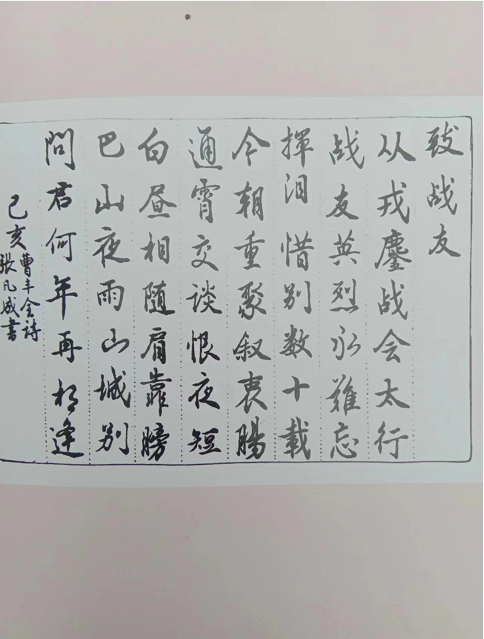 致战友
从戎鏖战会太行
战友英烈永難忘
揮泪惜别数十載
今朝重聚叙衷腸
通霄交谈恨夜短
白昼相随肩靠膀
巴山夜雨山城别
問君何年再相逢
己亥曹丰全诗
張凡成書